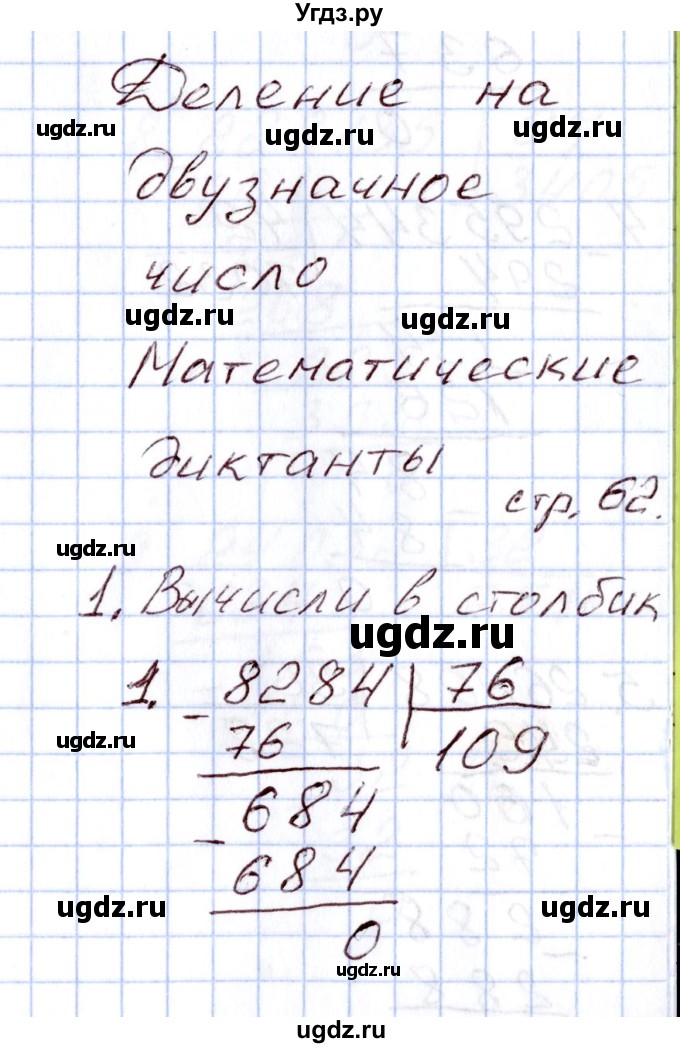 Угдз.ру
Деление на
ugdz.ru ugdz.ru ugdz.ru
двузначное
число
ugdz.ru ugdz.ru
Математические
диктанты
стр. 62.
ugdz.ru
1. Вычисли в столбик
ugdz.ru
1. 8284 | 76
- 76 109
ugdz.ru
684
- 684
ugdz.ru ugdz.ru
0
ugdz.ru
ugdz.ru